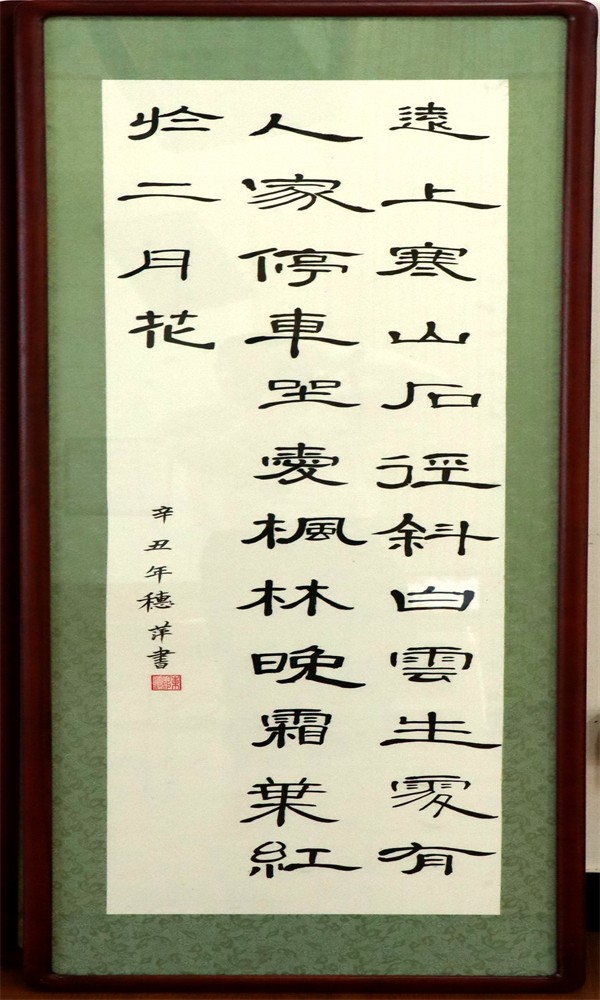 遠上寒山石徑斜白雲生處有
人家停車坐愛楓林晚霜葉紅
於二月花
辛丑年穗萍書